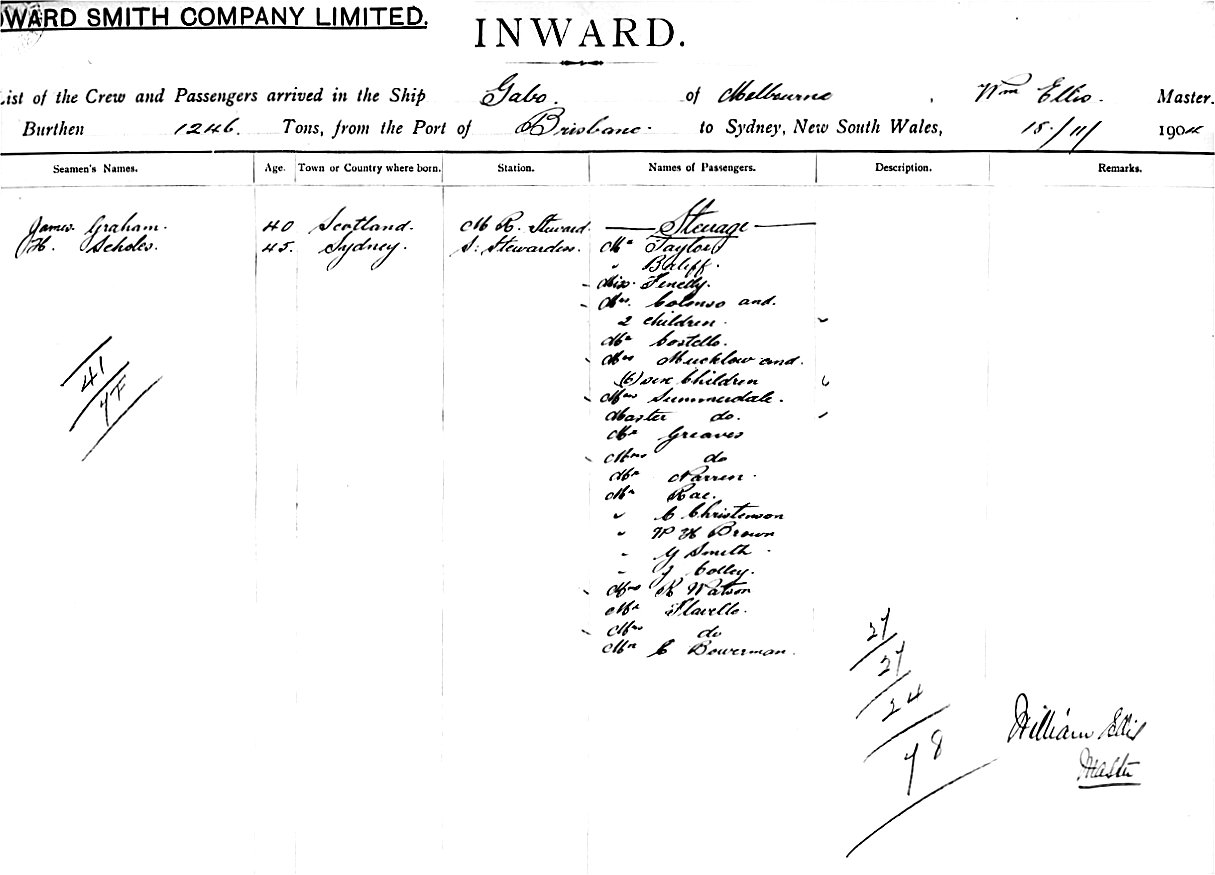 WARD SMITH COMPANY LIMITED.
INWARD.
List of the Crew and Passengers arrived in the Ship Gabo. of Melbourne, Wm Ellis. Master.
Burthen 1246. Tons, from the Port of Brisbane. to Sydney, New South Wales, 15/11/ 1904
Seamen's Names. Age. Town or Country where born. Station. Names of Passengers. Description. Remarks.
James Graham. 40 Scotland. M R. Steward. Steerage
H. Scholes. 45. Sydney. S: Stewardess. Mr Taylor
" Bailiff.
Miss Fenelly.
Mrs. Colenso and.
2 children.
Mr Costello.
Mrs Mucklow and.
(6) six Children
Mrs Summerdale.
Master do.
Mr Greaves
Mrs do
Mr Warren.
Mr Rae.
" C Christenson
" W H Brown
" G Smith
" J Colley.
Mrs K Watson
Mr Flavelle.
Mrs do
Mr C Bowerman.
41
27
27
24
78
William Ellis
Master